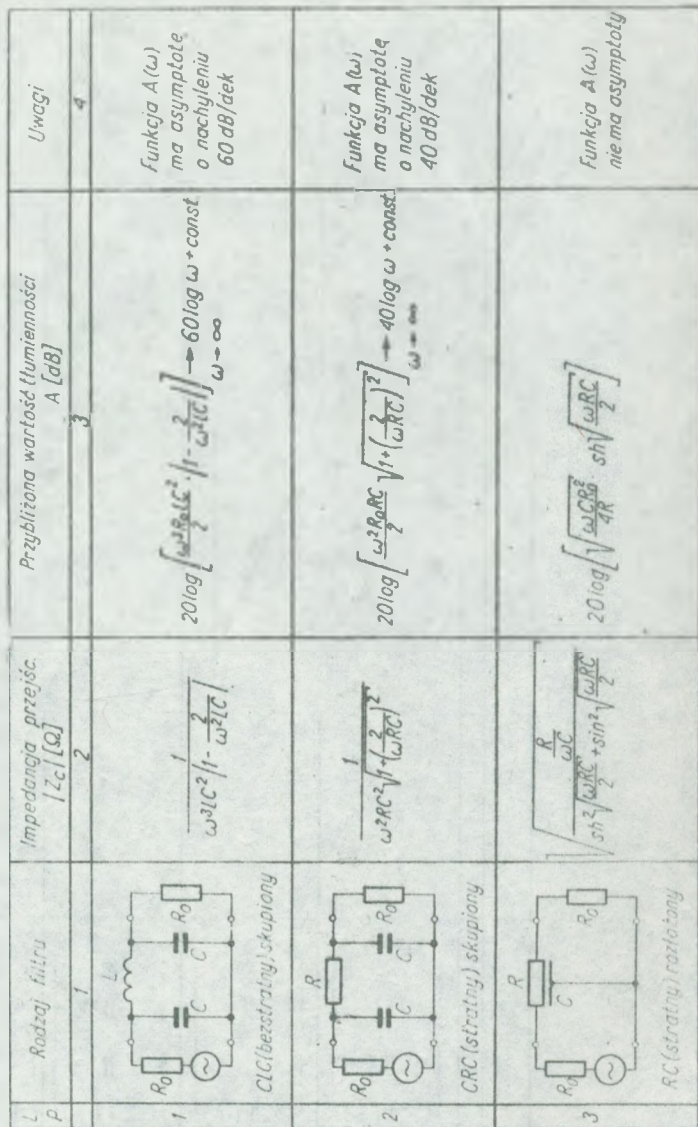 L P
Rodzaj filtru
Impedancja przejśc. |Zc| [Ω]
Przybliżona wartość tłumienności A [dB]
Uwagi
1
2
3
4
1
R₀
L
C
C
R₀
CLC (bezstratny) skupiony
1 / (ω³LC² |1 - 2/(ω²LC)|)
20 log [ω³R₀LC²/2 · |1 - 2/(ω²LC)|] → 60 log ω + const.
ω → ∞
Funkcja A(ω)
ma asymptotę
o nachyleniu
60 dB/dek
2
R₀
R
C
C
R₀
CRC (stratny) skupiony
1 / (ω²RC² √(1 + (2/(ωRC))²))
20 log [ω²R₀RC/2 √(1 + (2/(ωRC))²)] → 40 log ω + const.
ω → ∞
Funkcja A(ω)
ma asymptotę
o nachyleniu
40 dB/dek
3
R₀
R
C
R₀
RC (stratny) rozłożony
√((R/(ωC)) / (sh²√(ωRC/2) + sin²√(ωRC/2)))
20 log [√(ωCR₀²/(4R)) · sh√(ωRC/2)]
Funkcja A(ω)
nie ma asymptoty